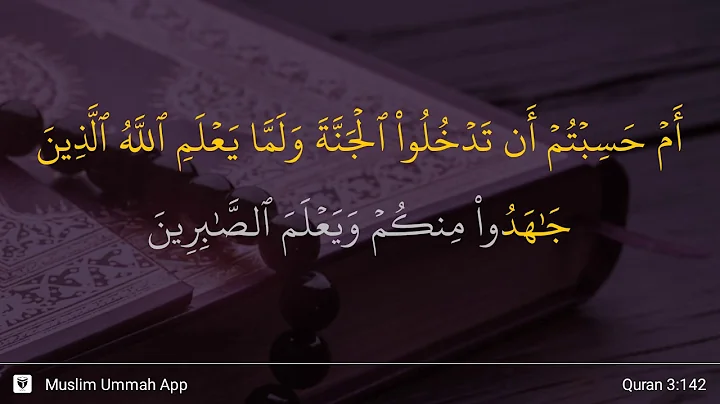 أَمۡ حَسِبۡتُمۡ أَن تَدۡخُلُواْ ٱلۡجَنَّةَ وَلَمَّا يَعۡلَمِ ٱللَّهُ ٱلَّذِينَ
جَٰهَدُواْ مِنكُمۡ وَيَعۡلَمَ ٱلصَّٰبِرِينَ
Muslim Ummah App
Quran 3:142